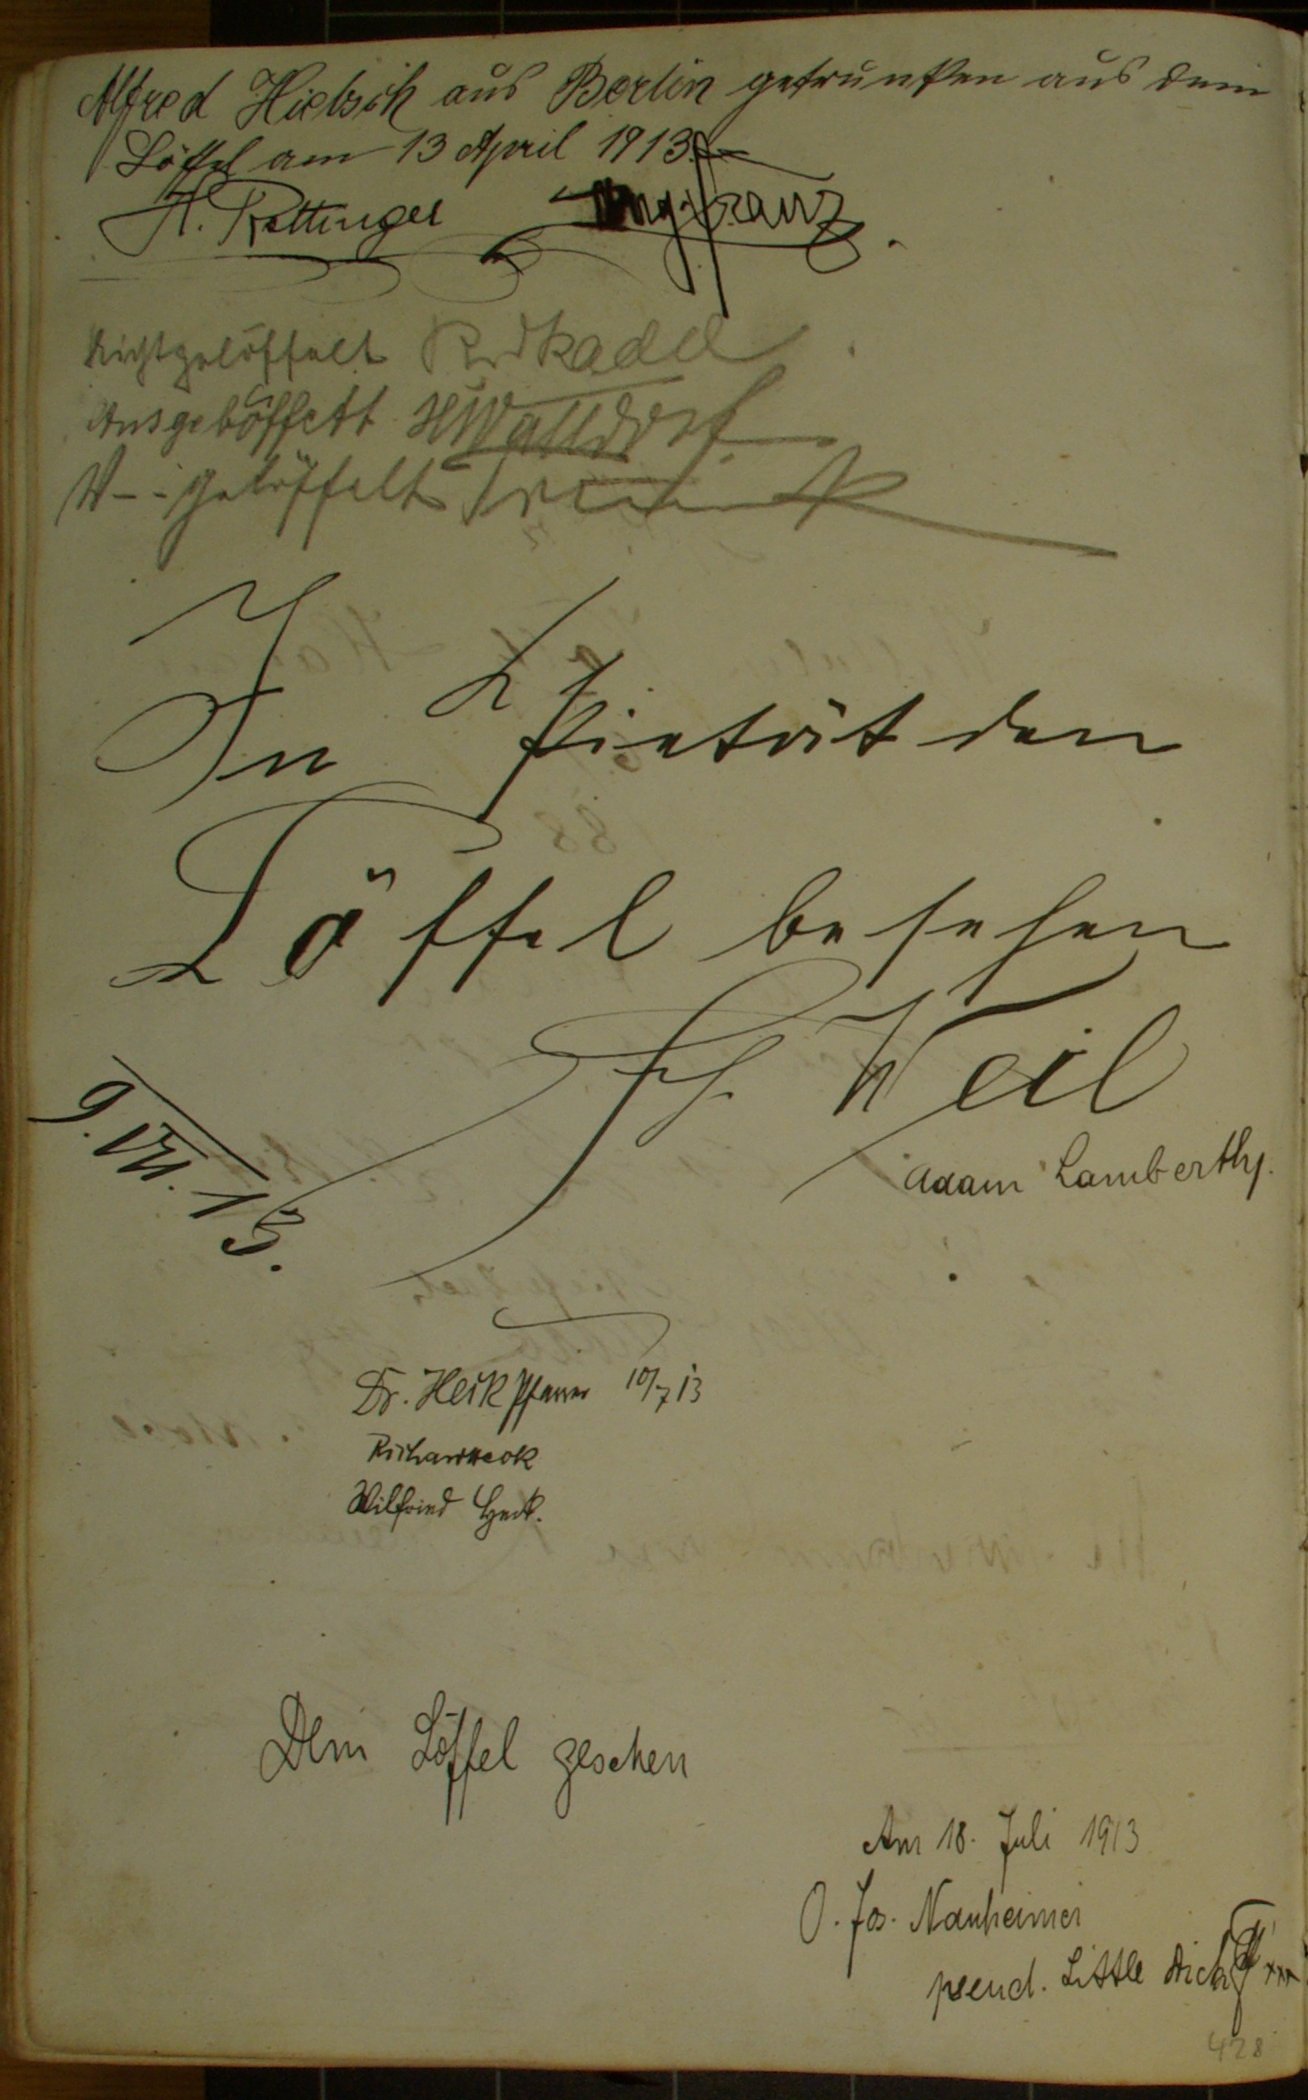 Alfred Hielsch aus Berlin getrunken aus dem
Löffel am 13 April 1913
H. Rettinger Aug. Franz
Nichtgelöffelt
Ausgelöffelt
V--gelöffelt
In Pietät den
Löffel besehen
Weil
9. VII. 13.
Adam Lamberthy.
Dr. Heck Pfarrer 10/7 13
Richard Heck
Wilfried Heck.
Den Löffel gesehen
Am 18. Juli 1913
O. Jos. Nauheimer
pseud. Little
428